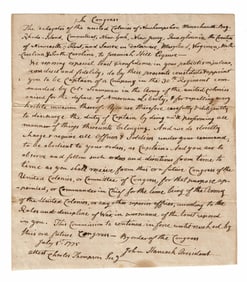 In Congress
The delegates of the united Colonies of Newhampshire Massachusetts Bay,
Rhode Island, Connecticut, New York, New Jersey Pennsylvania, the Counties
of Newcastle, Kent, and Sussex on Delaware, Maryland, Virginia, North
Carolina, South Carolina, to Esqr
We reposing especial trust & confidence in your patriotism, valour,
conduct and fidelity, do by these presents constitute & appoint
you to be Captain of a Company in the Regiment com
manded by Col. in the army of the united colonies
raised for the defence of American Liberty, & for repelling every
hostile invasion thereof. You are therefore carefully & diligently
to discharge the duty of Captain by doing & performing all
manner of things thereunto belonging. And we do strictly
charge & require all officers & soldiers under your command,
to be obedient to your orders, as Captain. And you are to
observe and follow such orders and directions from time to
time as you shall receive from this or a future Congress of the
United Colonies, or Committee of Congress, for that purpose, ap
pointed, or Commander in Chief for the time being of the army
of the United Colonies, or any other superior officer, according to the
Rules and discipline of War, in pursuance of the trust reposed
in you. This Commission to continue in force until revoked by
this or a future Congress. By order of the Congress
July 1775
Attest Charles Thompson Secy John Hancock President